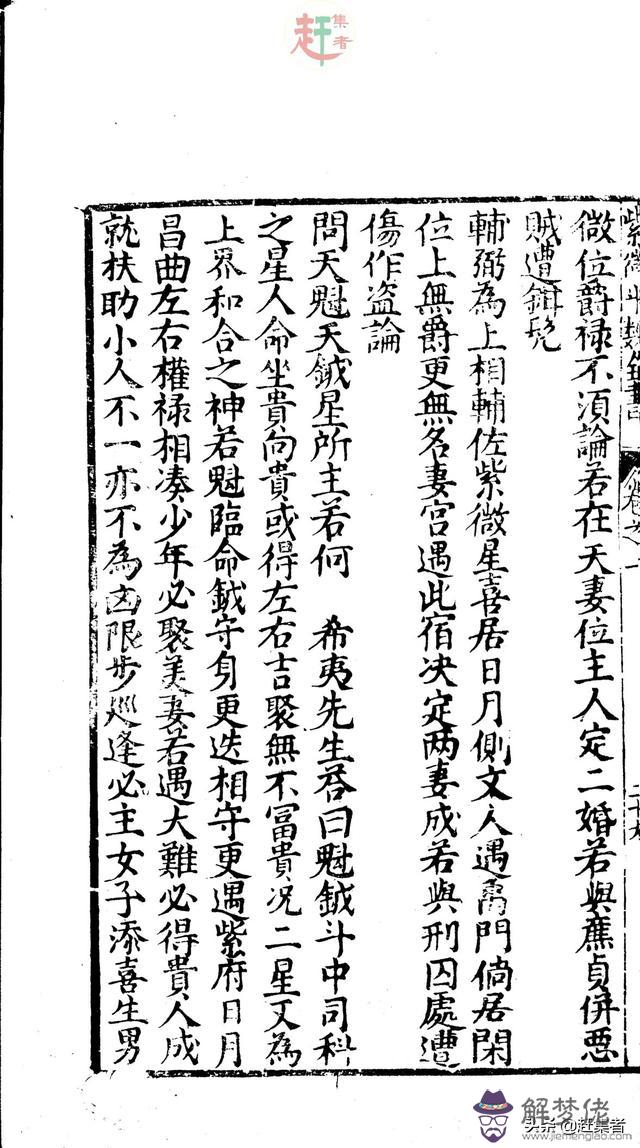 赶集者
紫微斗數全書 卷之一 二十九
微位爵禄不須論若在天妻位主人定二婚若與廉貞併惡
賊遭鉗髡
輔弼為上相輔佐紫微星喜居日月側文人遇禹門倘居閑
位上無爵更無名妻宮遇此宿决定两妻成若與刑囚處遭
傷作盗論
問天魁天鉞星所主若何 希夷先生荅曰魁鉞斗中司科
之星人命坐貴向貴或得左右吉聚無不冨貴况二星又為
上界和合之神若魁臨命鉞守身更迭相守更遇紫府日月
昌曲左右權禄相凑少年必聚美妻若遇大難必得貴人成
就扶助小人不一亦不為凶限步廵逢必主女子添喜生男
解梦佬
www.jiemenglao.com
头条@赶集者